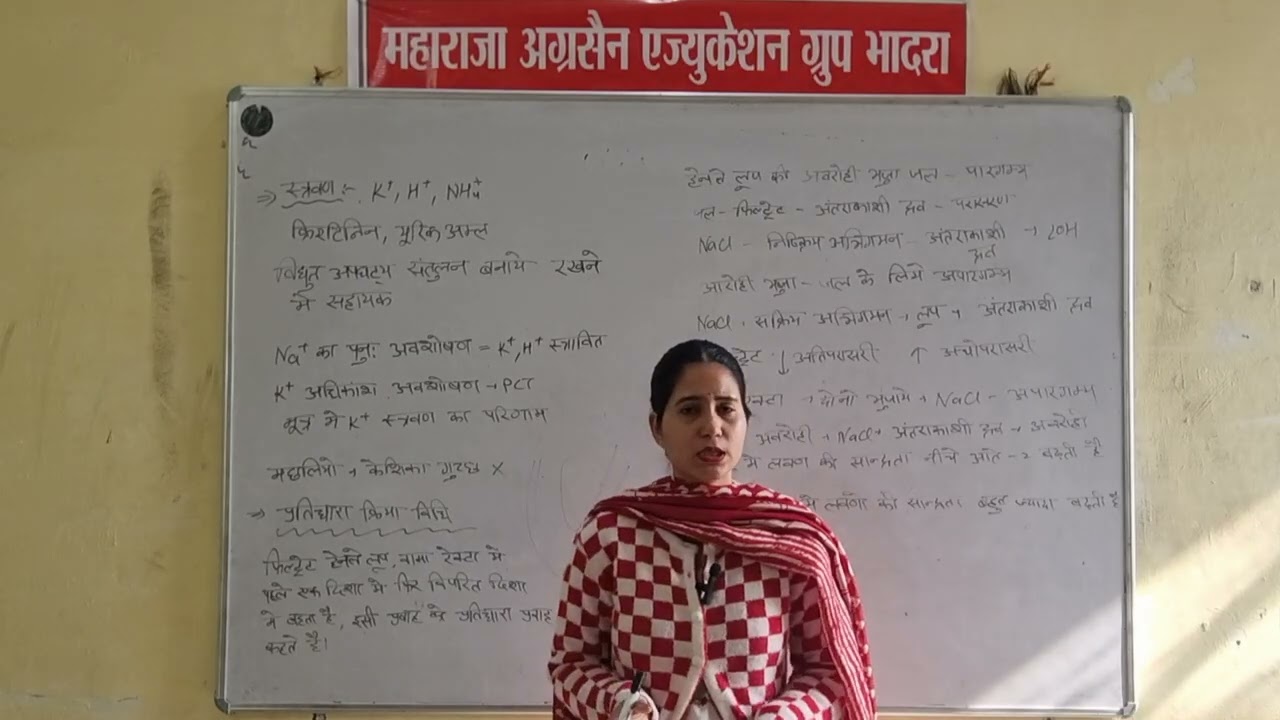 महाराजा अग्रसैन एज्युकेशन ग्रुप भादरा
⇒ स्त्रवण :- K⁺, H⁺, NH₄⁺
क्रिएटिनिन, यूरिक अम्ल
विद्युत अपघट्य संतुलन बनाये रखने
में सहायक
Na⁺ का पुनः अवशोषण = K⁺, H⁺ स्त्रावित
K⁺ अधिकांश अवशोषण → PCT
मूत्र में K⁺ स्त्रवण का परिणाम
मछलियो → केशिका गुच्छ ×
⇒ प्रतिधारा क्रिया विधि
फिल्ट्रेट हेनले लूप, वासा रेक्टा में
पहले एक दिशा में फिर विपरित दिशा
में बहता है, इसी प्रवाह को प्रतिधारा प्रवाह
कहते है।
हेनले लूप की अवरोही भुजा जल - पारगम्य
जल - फिल्ट्रेट - अंतराकाशी द्रव - परासरण
NaCl - निष्क्रिय अभिगमन - अंतराकाशी द्रव → LOH
आरोही भुजा - जल के लिये अपारगम्य
NaCl - सक्रिय अभिगमन → लूप → अंतराकाशी द्रव
↓ अतिपरासरी ↑ अधोपरासरी
→ दोनो भुजाये → NaCl -
अवरोही → NaCl → अंतराकाशी द्रव →
में लवण की सान्द्रता नीचे और → बढ़ती है
में लवणो की सान्द्रता बहुत ज्यादा बढ़ती है